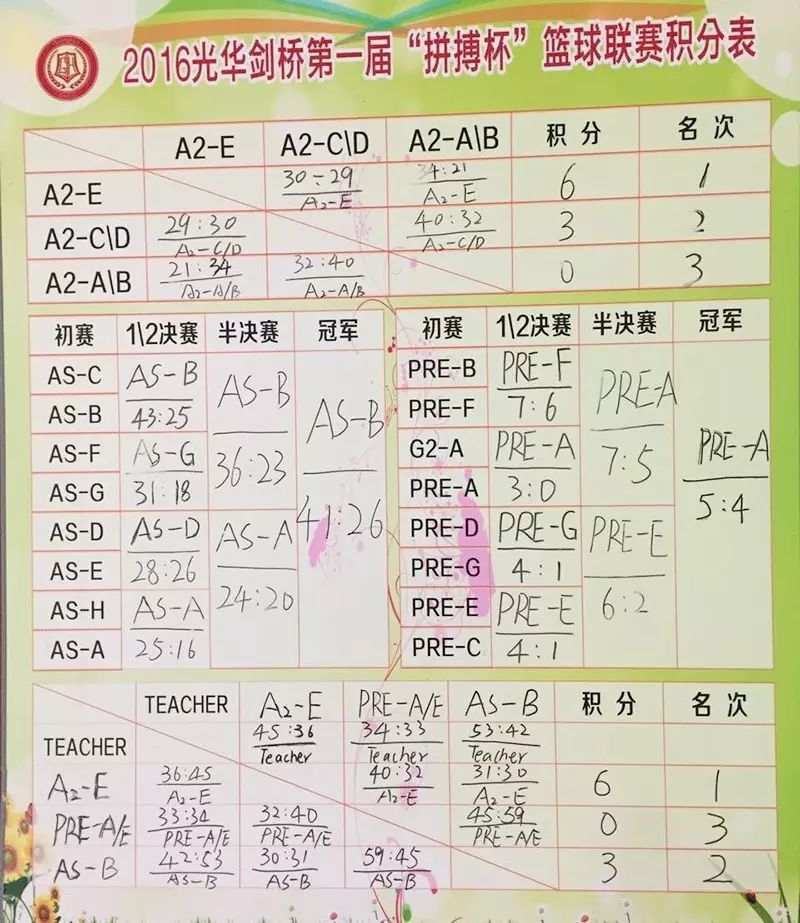 2016光华剑桥第一届“拼搏杯”篮球联赛积分表
A2-E A2-C\D A2-A\B 积分 名次
A2-E 30÷29 A2-E 34:21 A2-E 6 1
A2-C\D 29:30 A2-C/D 40:32 A2-C/D 3 2
A2-A\B 21:34 A2-A/B 32:40 A2-A/B 0 3
初赛 1\2决赛 半决赛 冠军
AS-C AS-B AS-B AS-B
AS-B 43:25
AS-F AS-G 36:23
AS-G 31:18
AS-D AS-D AS-A 41:26
AS-E 28:26 24:20
AS-H AS-A
AS-A 25:16
初赛 1\2决赛 半决赛 冠军
PRE-B PRE-F PRE-A PRE-A
PRE-F 7:6
G2-A PRE-A 7:5
PRE-A 3:0 5:4
PRE-D PRE-G PRE-E
PRE-G 4:1
PRE-E PRE-E 6:2
PRE-C 4:1
TEACHER A2-E PRE-A/E AS-B 积分 名次
TEACHER 45:36 Teacher 34:33 Teacher 53:42 Teacher
A2-E 36:45 A2-E 40:32 A2-E 31:30 A2-E 6 1
PRE-A/E 33:34 PRE-A/E 32:40 PRE-A/E 45:59 PRE-A/E 0 3
AS-B 42:53 AS-B 30:31 AS-B 59:45 AS-B 3 2